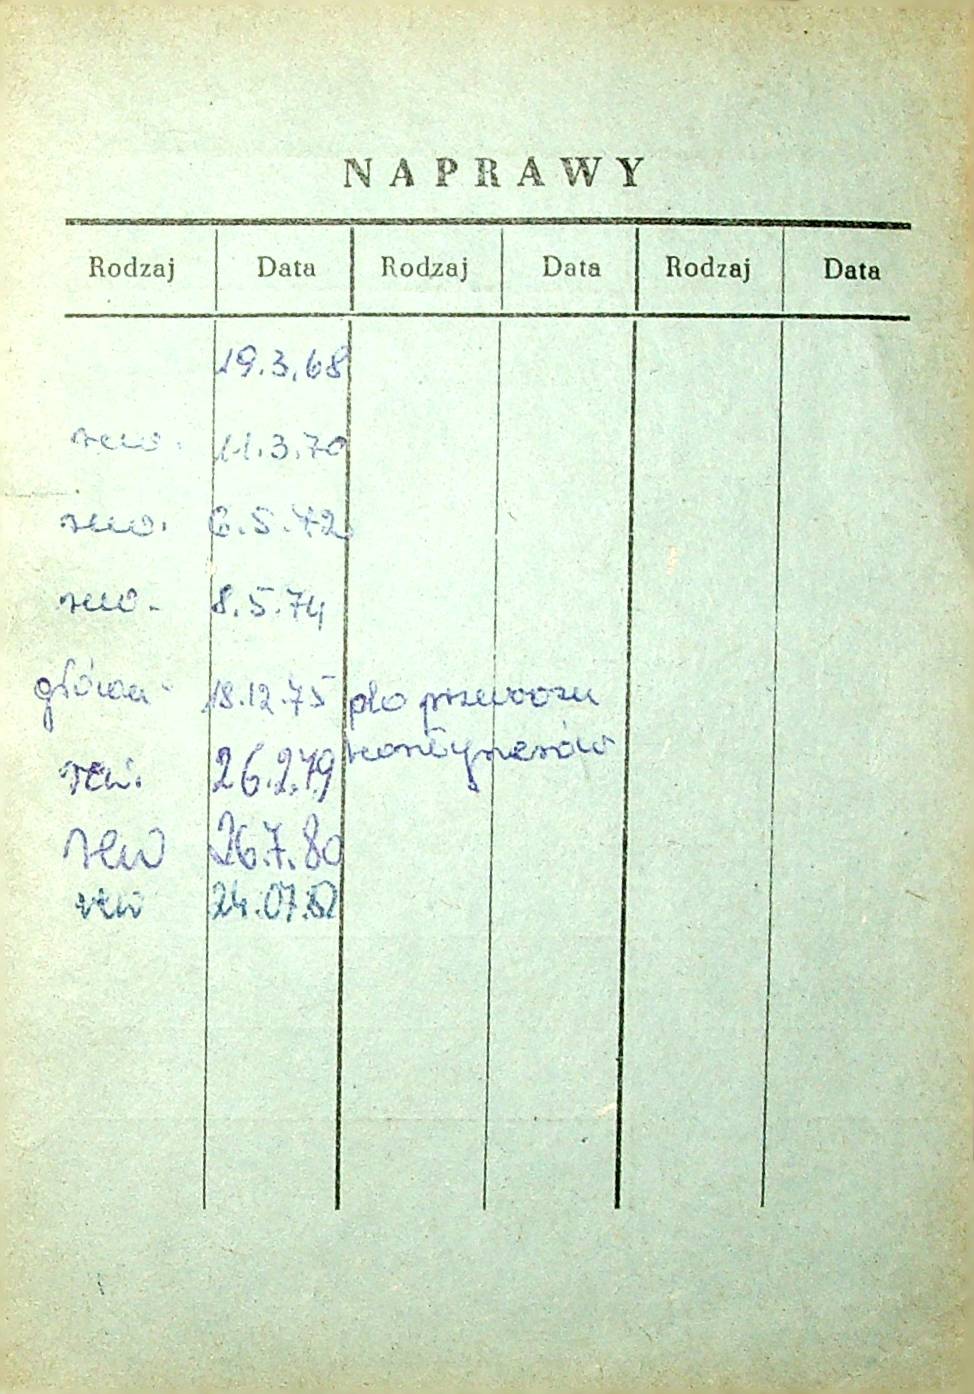 NAPRAWY
Rodzaj Data Rodzaj Data Rodzaj Data
19.3.68
rew. 11.3.70
rew. 6.5.72
rew. 8.5.74
główna 18.12.75 do przewozu
kontynerów
rew. 26.2.79
rew 26.7.80
rew 24.07.82